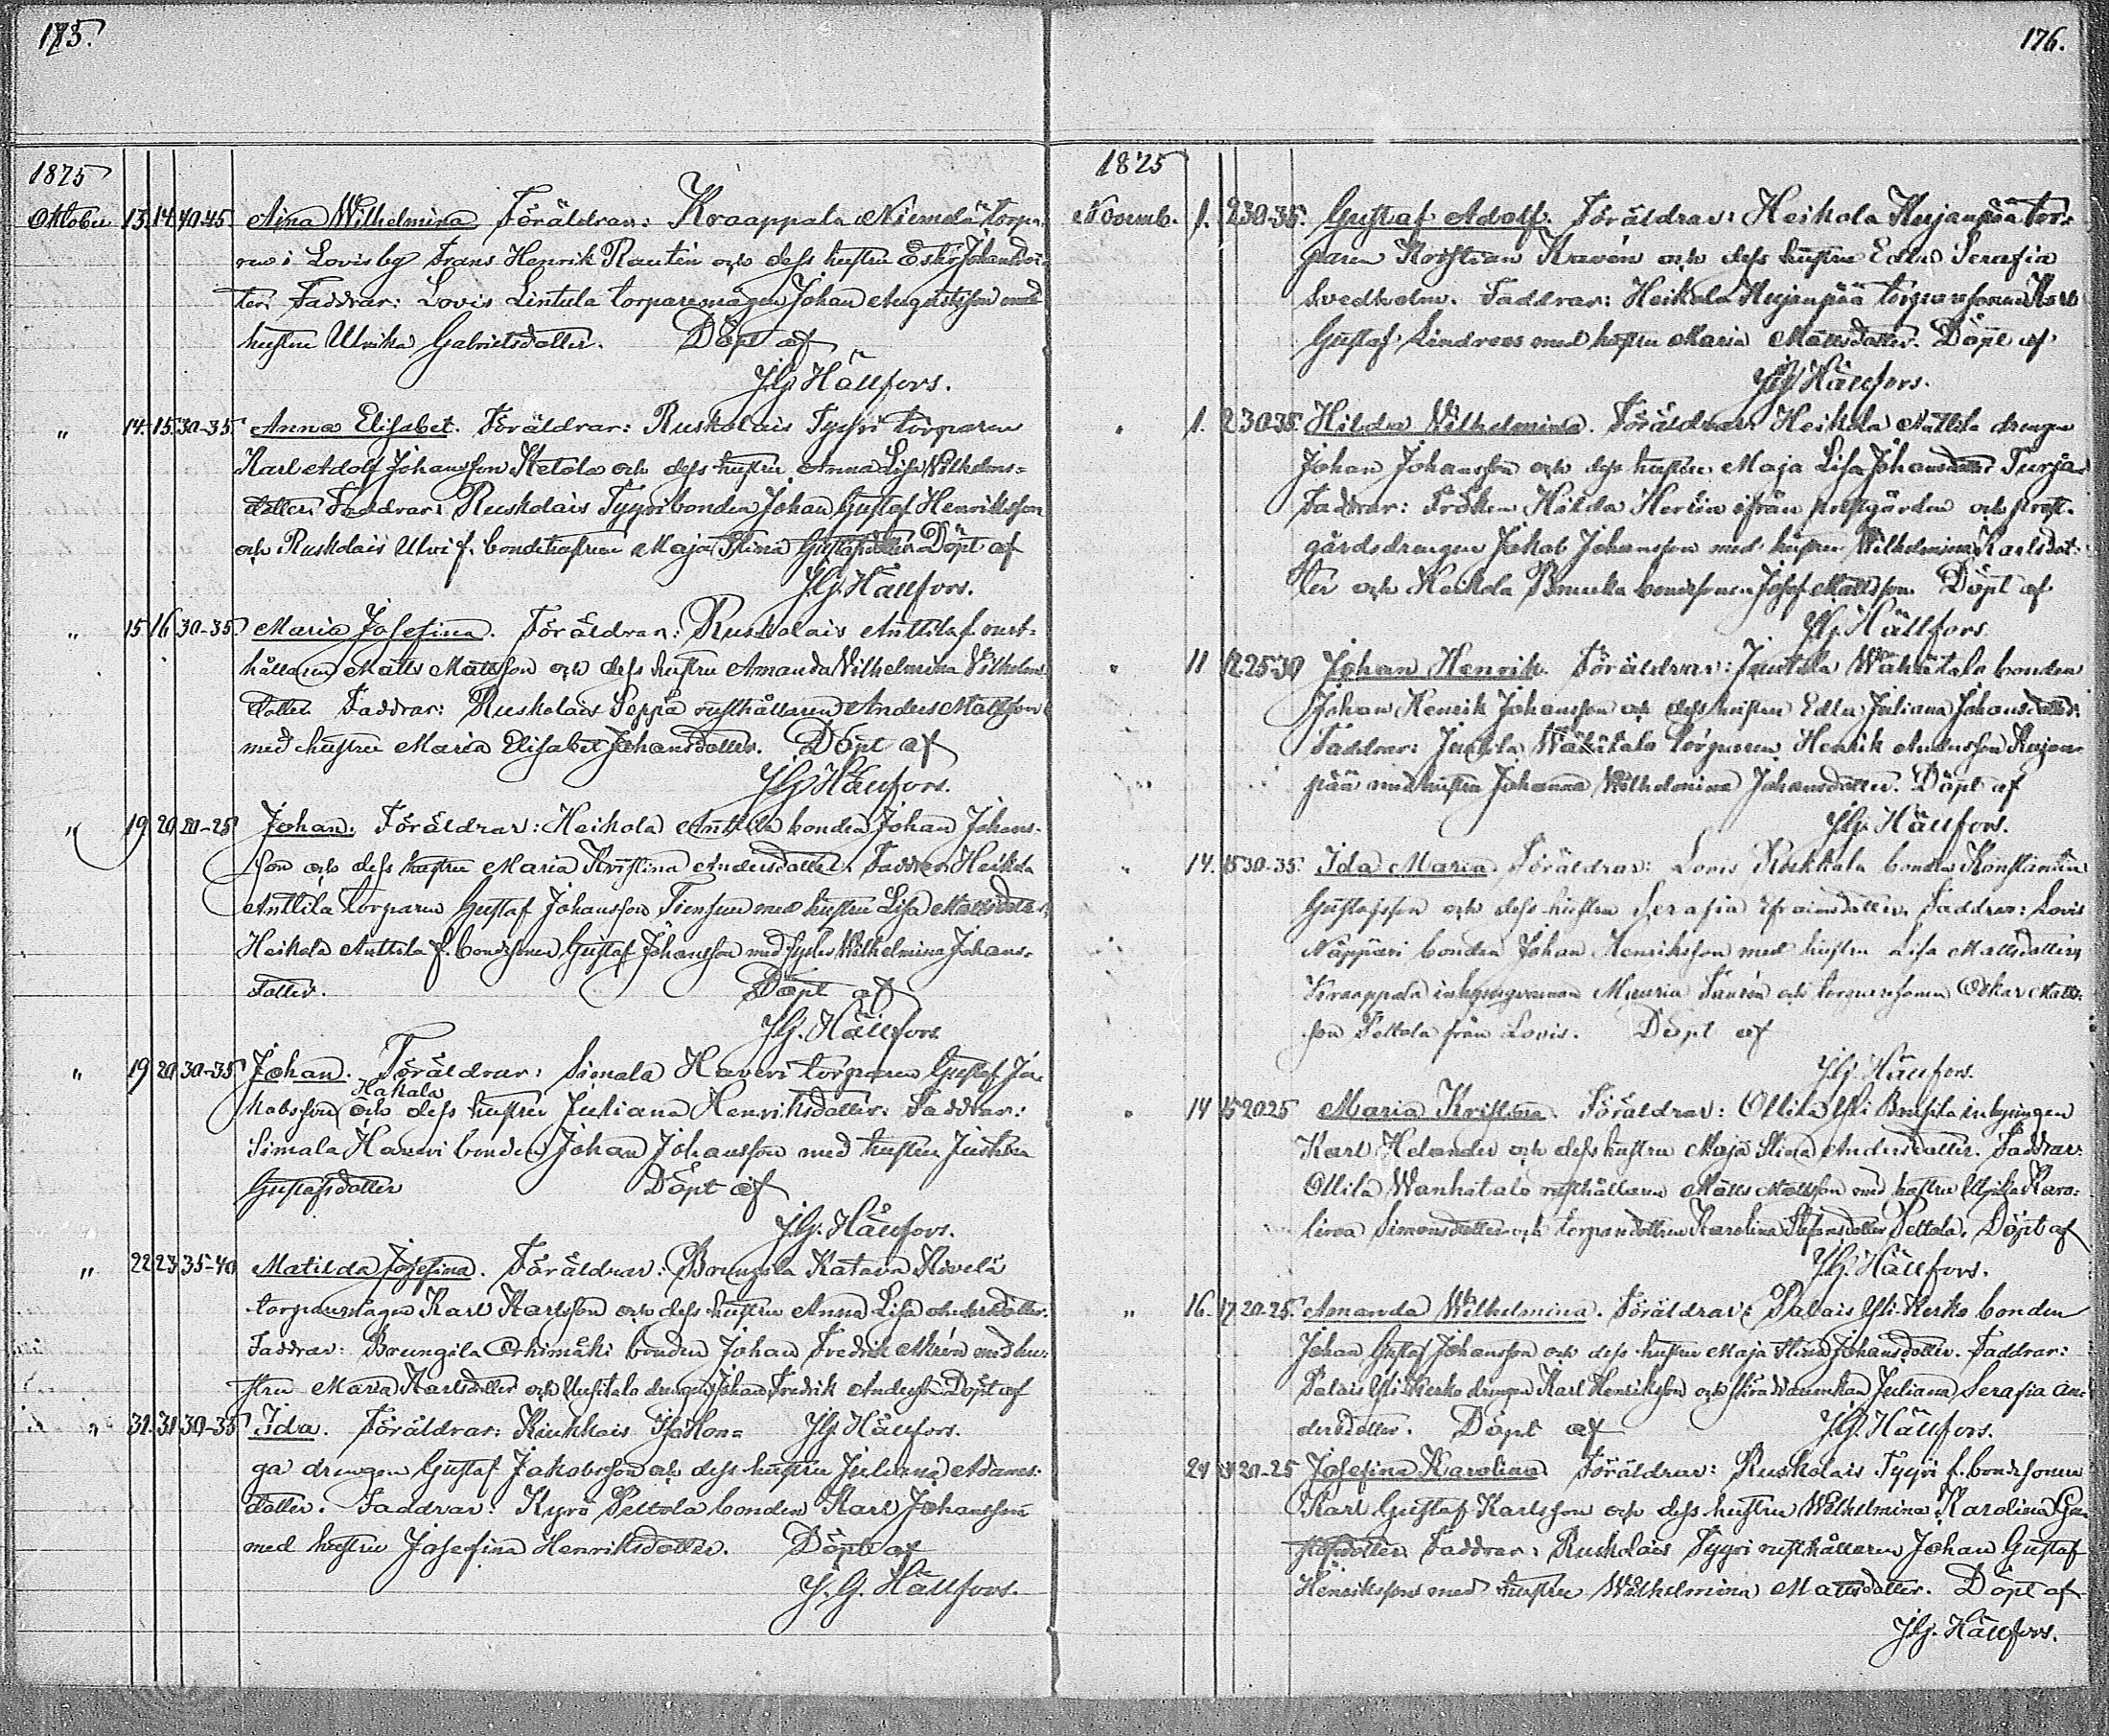 175.
1875
Oktober 13. 14. 40-45. Aina Wilhelmina Föräldrar: Kraappala Niemelä torpa-
ren i Lovisby Frans Henrik Rautin och dess hustru Johansdot-
ter. Faddrar: Lovis Lintula torparemågen Johan Augustsson med
hustru Ulrika Gabrielsdotter. Döpt af
J.G. Hällfors.
" 14. 15. 30-35. Anna Elisabet. Föräldrar: Ruskolais Tyyri torparen
Karl Adolf Johansson Ketola och dess hustru Anna Lisa Wilhelms-
dotter. Faddrar: Ruskolais Tyyri bonden Johan Gustaf Henriksson
och Ruskolais Ulvi f. bondehustrun Maja Stina Gustafsdotter Döpt af
J.G. Hällfors.
" 15 16 30-35. Maria Josefina. Föräldrar: Ruskolais Anttila f. rust-
hållaren Matts Mattsson och dess hustru Amanda Vilhelmina Vilhelms-
dotter. Faddrar: Ruskolais Seppä rusthållaren Anders Mattsson
med hustru Maria Elisabet Johansdotter. Döpt af
J.G. Hällfors.
" 19 20 20-25 Johan. Föräldrar: Heikola Anttila bonden Johan Johans-
son och dess hustru Maria Kristina Andersdotter. Faddrar Heikola
Anttila torparen Gustaf Johansson Tiensuu med hustru Lisa Mattsdotter,
Heikola Anttila f. bondsonen Gustaf Johansson med syster Wilhelmina Johans-
dotter. Döpt af
J.G. Hällfors.
" 19 20 30-35 Johan. Föräldrar: Simala Haveri torparen Gustaf Ja-
Hakala
kobsson och dess hustru Juliana Henriksdotter. Faddrar:
Simala Haveri bonden Johan Johansson med hustru
Gustafsdotter Döpt af
J.G. Hällfors.
" 22 23 35-40 Matilda Josefina. Föräldrar: Katava Kivelä
torparemågen Karl Karlsson och dess hustru Anna Lisa Andersdotter.
Faddrar: Orhimäki bonden Johan Fredrik med hu-
stru Maria Karlsdotter och Uusitalo drengen Johan Fredrik Andersson Döpt af
" 31. 31 30-35 Ida. Föräldrar: J.G. Hällfors.
ga drengen Gustaf Jakobsson och dess hustru Juliana Adams-
dotter. Faddrar: Kyrö Peltola bonden Karl Johansson
med hustru Josefina Henriksdotter. Döpt af
J.G. Hällfors.
176.
1875
Novemb. 1. 2 30-35. Gustaf Adolf. Föräldrar: Heikola Kujanpää tor-
paren Kristian Kavén och dess hustru Edla Serafia
Svedholm. Faddrar: Heikola Kujanpää torparesonen Karl
Gustaf Lindroos med hustru Maria Mattsdotter. Döpt af
J.G. Hällfors.
" 1. 2 30-35. Hilda Vilhelmina. Föräldrar: Heikola Anttila drengen
Johan Johansson och dess hustru Maja Lisa Johansdotter
Faddrar: Fröken Hilda Herlin ifrån prestgården och prest-
gårdsdrengen Jakob Johansson med hustru Wilhelmina Karlsdot-
ter och Heikola bondesonen Josef Mattsson. Döpt af
J.G. Hällfors
" 11 12 25-30 Johan Henrik. Föräldrar: Juntila Wähätalo bonden
Johan Henrik Johansson och dess hustru Edla Juliana Johansdotter.
Faddrar: Juntila Wähätalo torparen Henrik Andersson Kujan-
pää med hustru Johanna Wilhelmina Johansdotter. Döpt af
J.G. Hällfors.
" 14. 15 30-35. Ida Maria. Föräldrar: Lovis bonden Konstantin
Gustafsson och dess hustru Serafia Efraimsdotter. Faddrar: Lovis
Näppäri bonden Johan Henriksson med hustru Lisa Mattsdotter,
Kraappala och torparesonen Oskar Matts-
son Peltola från Lovis. Döpt af
J.G. Hällfors.
" 14 15 20 25 Maria Kristina. Föräldrar: Ollila inhysingen
Karl Helander och dess hustru Maja Stina Andersdotter. Faddrar:
Ollila Wanhatalo rusthållaren Matts Mattsson med hustru Ulrika Karo-
lina Simonsdotter och torparedottren Karolina Stefansdotter Peltola. Döpt af
J.G. Hällfors.
" 16. 17 20-25. Amanda Wilhelmina. Föräldrar: Palais Yli-Kerko bonden
Johan Gustaf Johansson och dess hustru Maja Stina Johansdotter. Faddrar:
Palais Yli-Kerko drengen Karl Henriksson och Juliana Serafia An-
dersdotter. Döpt af J.G. Hällfors.
24 20-25 Josefina Karolina. Föräldrar: Ruskolais Tyyri f. bondesonen
Karl Gustaf Karlsson och dess hustru Wilhelmina Karolina Gu-
stafsdotter. Faddrar: Ruskolais Tyyri rusthållaren Johan Gustaf
Henriksson med hustru Wilhelmina Mattsdotter. Döpt af
J.G. Hällfors.